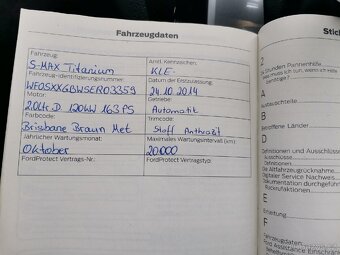 Fahrzeugdaten
Fahrzeug: Amtl. Kennzeichen:
S-MAX Titanium KLE-
Fahrzeug-Identifizierungsnummer: Datum der Erstzulassung:
WF0SXXGBWSER03359 24.10.2014
Motor: Getriebe:
2.0ltr.D 120kW 163 PS Automatik
Farbcode: Trimcode:
Brisbane Braun Met Stoff Anthrazit
Jährlicher Wartungsmonat: Maximales Wartungsintervall (km):
Oktober 20000
FordProtect Vertrags-Nr.: FordProtect Vertragstyp:
Stic
2
24 Stunden Pannenhilfe
was muss ich tun, wenn ich
A
Austauschteile
B
Betroffene Länder
D
Definitionen und Ausschlüsse
Definitionen
Ausschlüsse
Die Altfahrzeugrücknahme
Digitaler Service Nachweis
Dokumentation durchgeführter
Rückrufaktionen
E
Einleitung
F
Fahrzeugdaten
Ford Assistance Einschränkungen